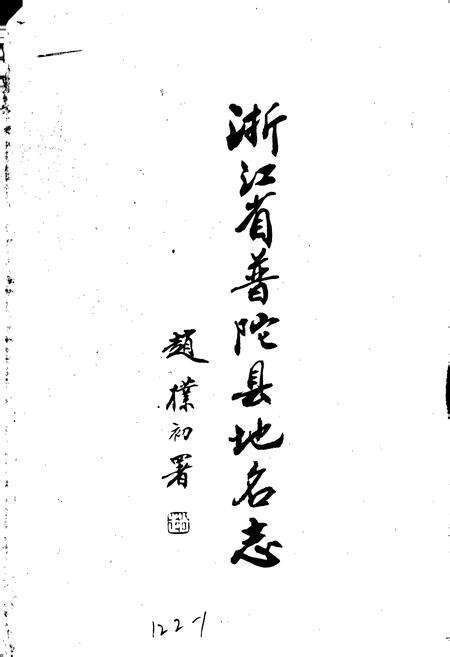 浙江省普陀县地名志
趙樸初署
122-1